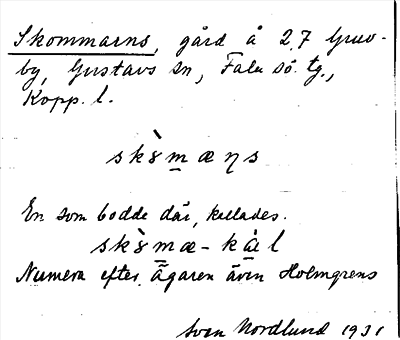 Skommarns, gård å 2,7 Gruv-
by, Gustavs sn, Falu sö. tg.,
Kopp. l.
skò̤mæŋs
En som bodde där, kallades.
Numera efter ägaren även Holmgrens
Sven Nordlund 1931